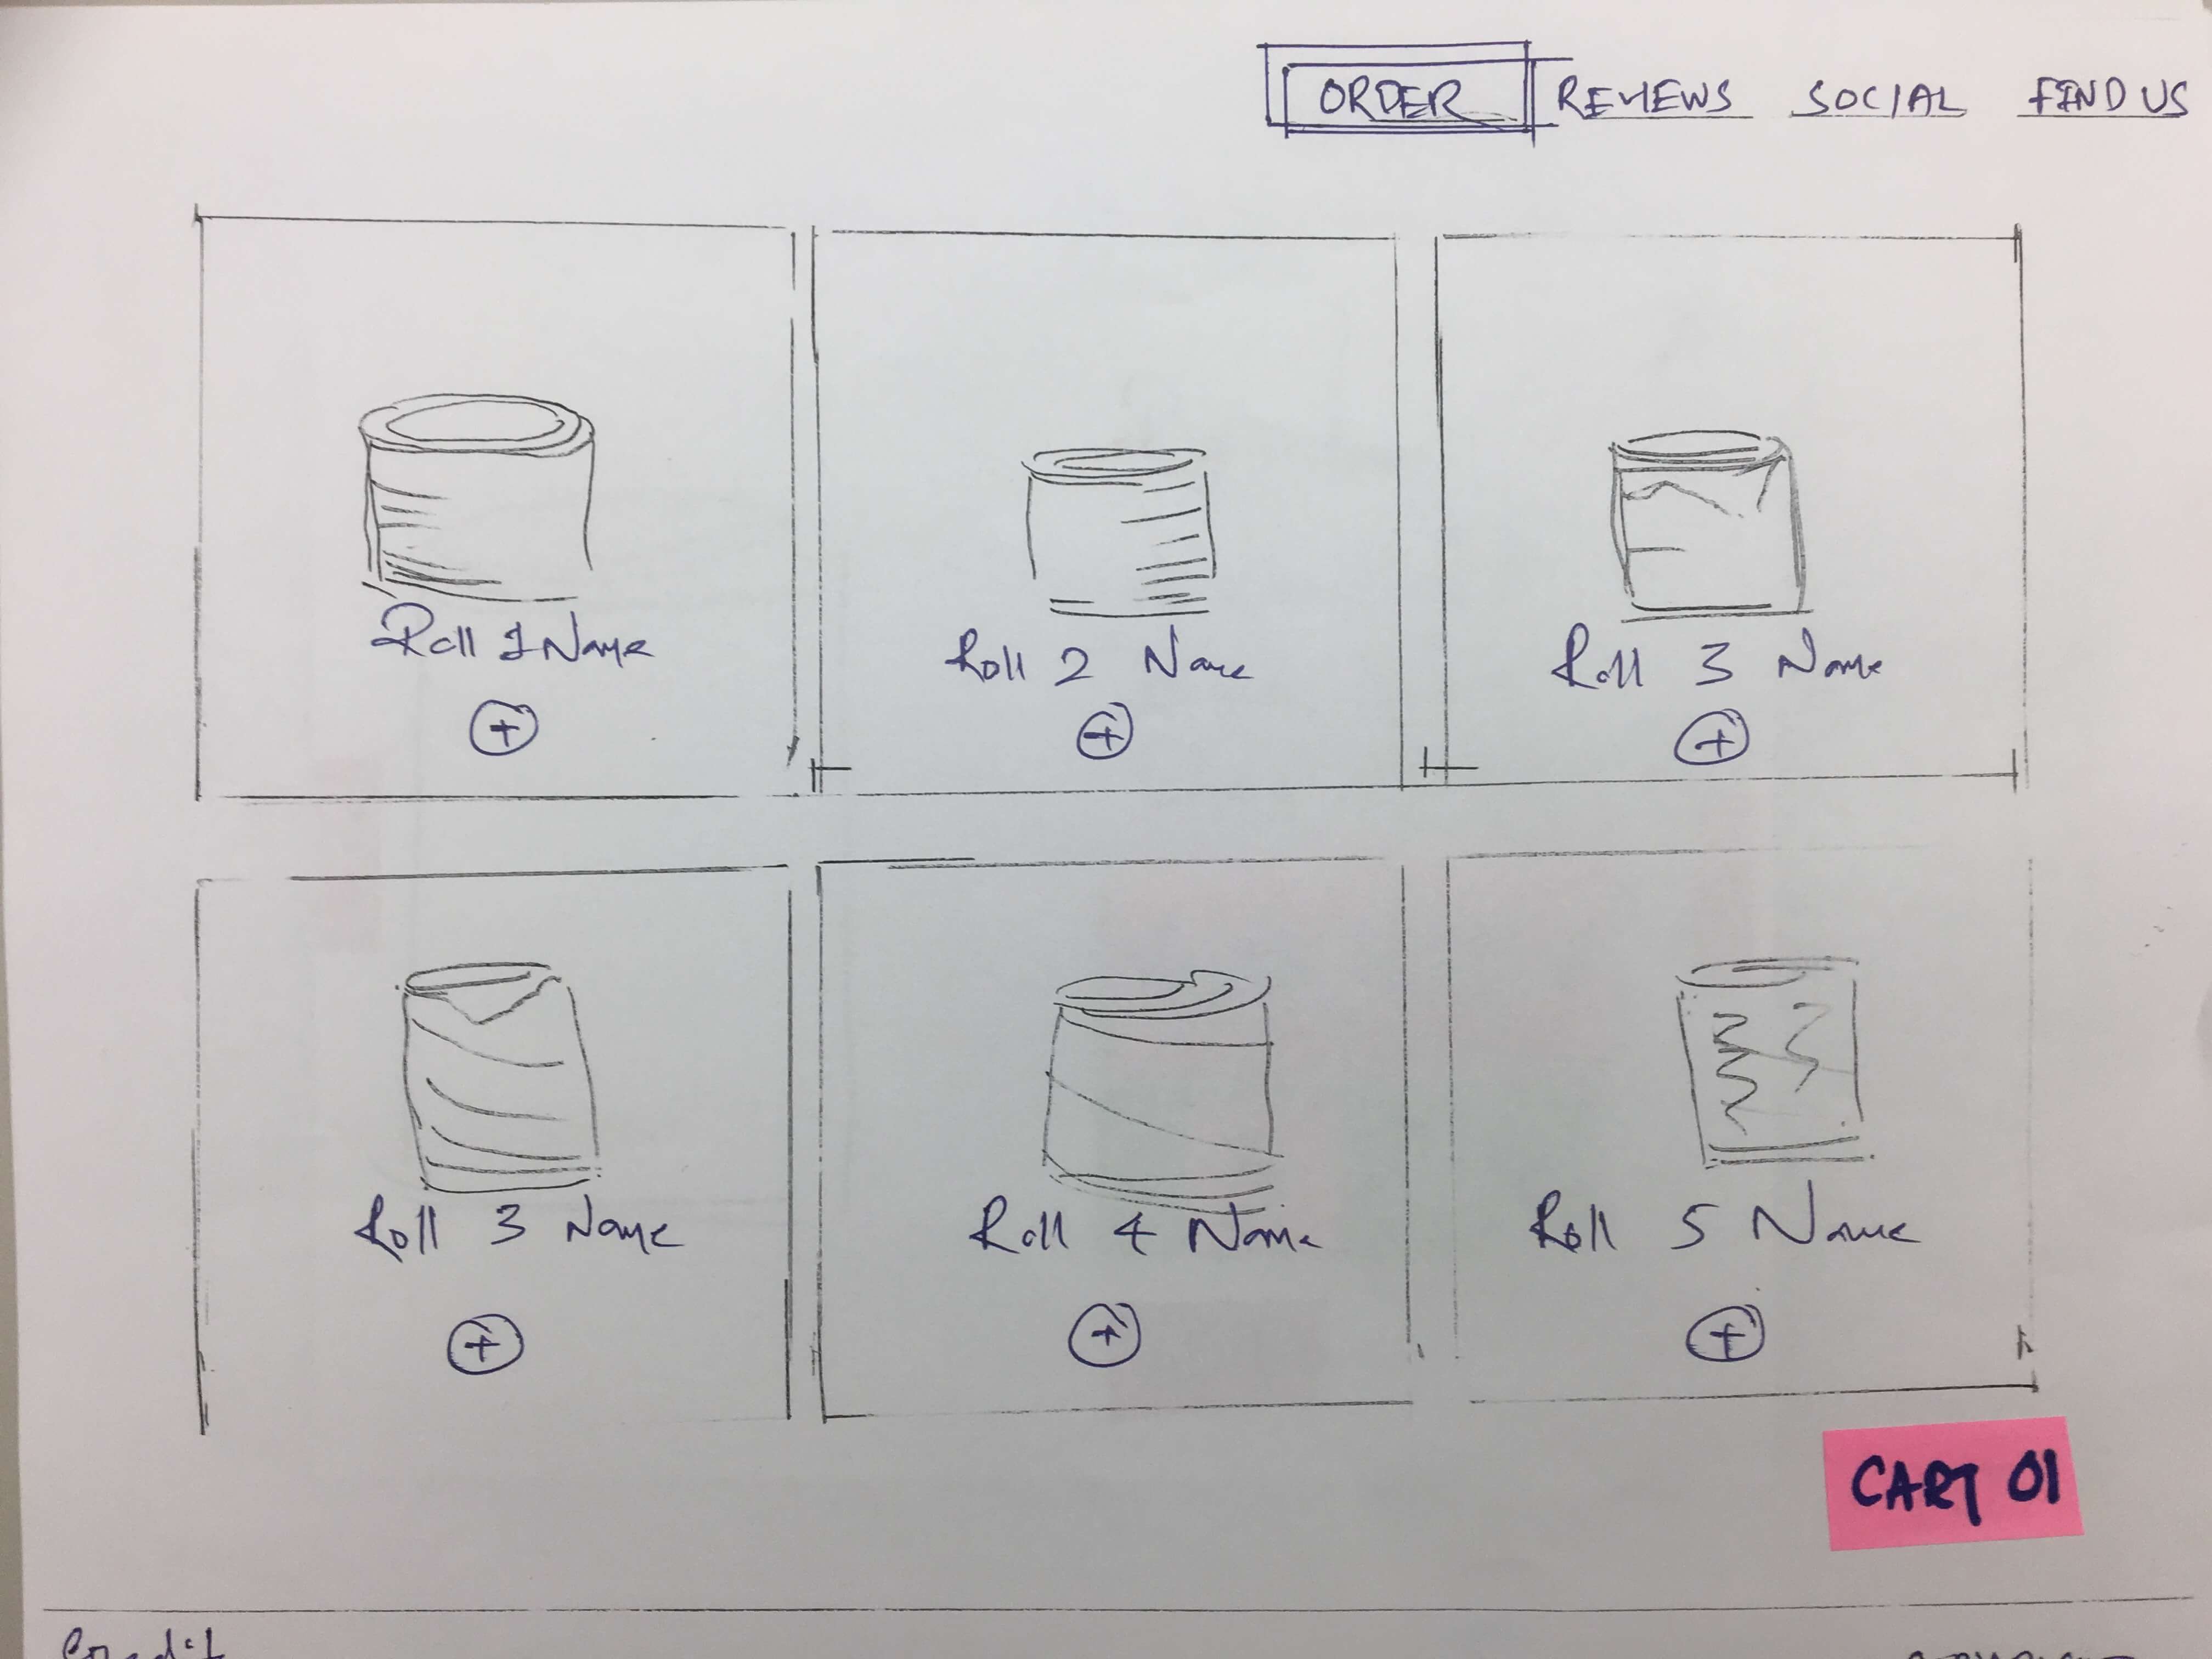 ORDER REVIEWS SOCIAL FIND US
Roll 1 Name
Roll 2 Name
Roll 3 Name
+
+
+
Roll 3 Name
Roll 4 Name
Roll 5 Name
+
+
+
CART 01
Credit